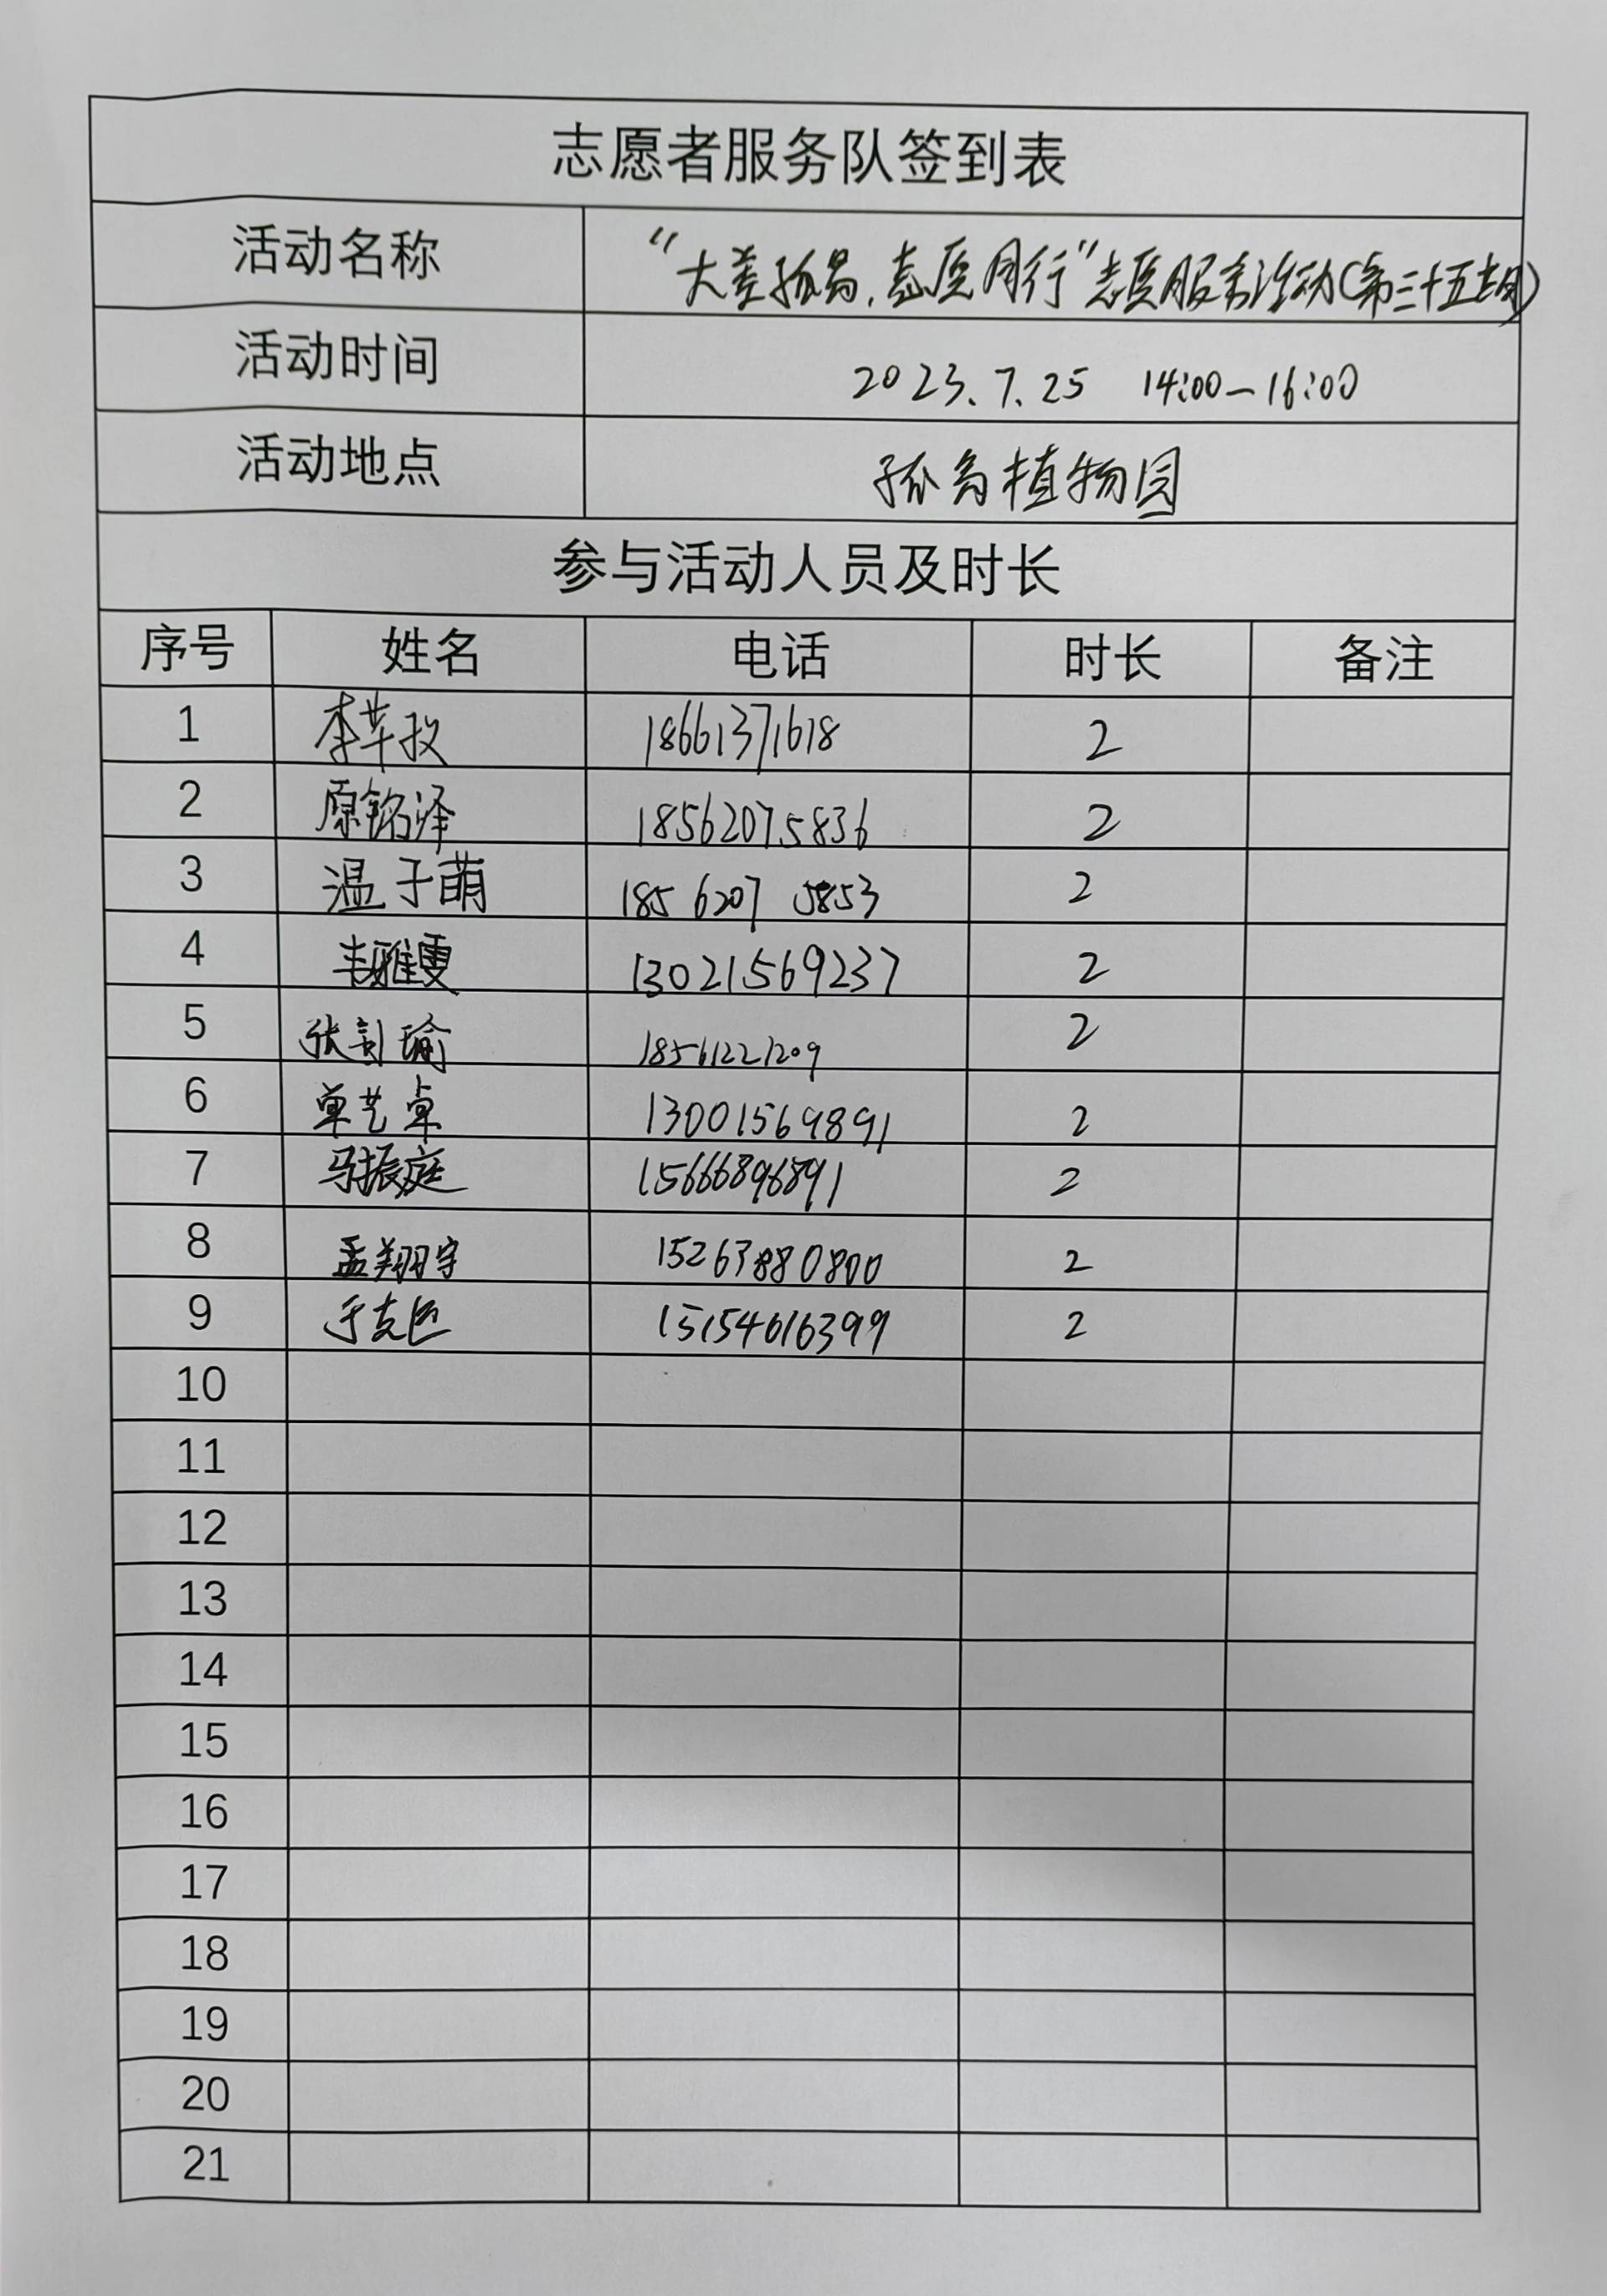 志愿者服务队签到表
活动名称 “大美孤岛,志愿同行”志愿服务活动(第三十五期)
活动时间 2023.7.25 14:00—16:00
活动地点 孤岛植物园
参与活动人员及时长
序号 姓名 电话 时长 备注
1 李 18661371618 2
2 原铭泽 18562075836 2
3 温子萌 185 6207 5853 2
4 韦雅雯 13021569237 2
5 张 瑜 18561221209 2
6 单艺卓 13001569891 2
7 马振庭 15666896891 2
8 孟翔宇 15263880800 2
9 于克 15154616399 2
10
11
12
13
14
15
16
17
18
19
20
21